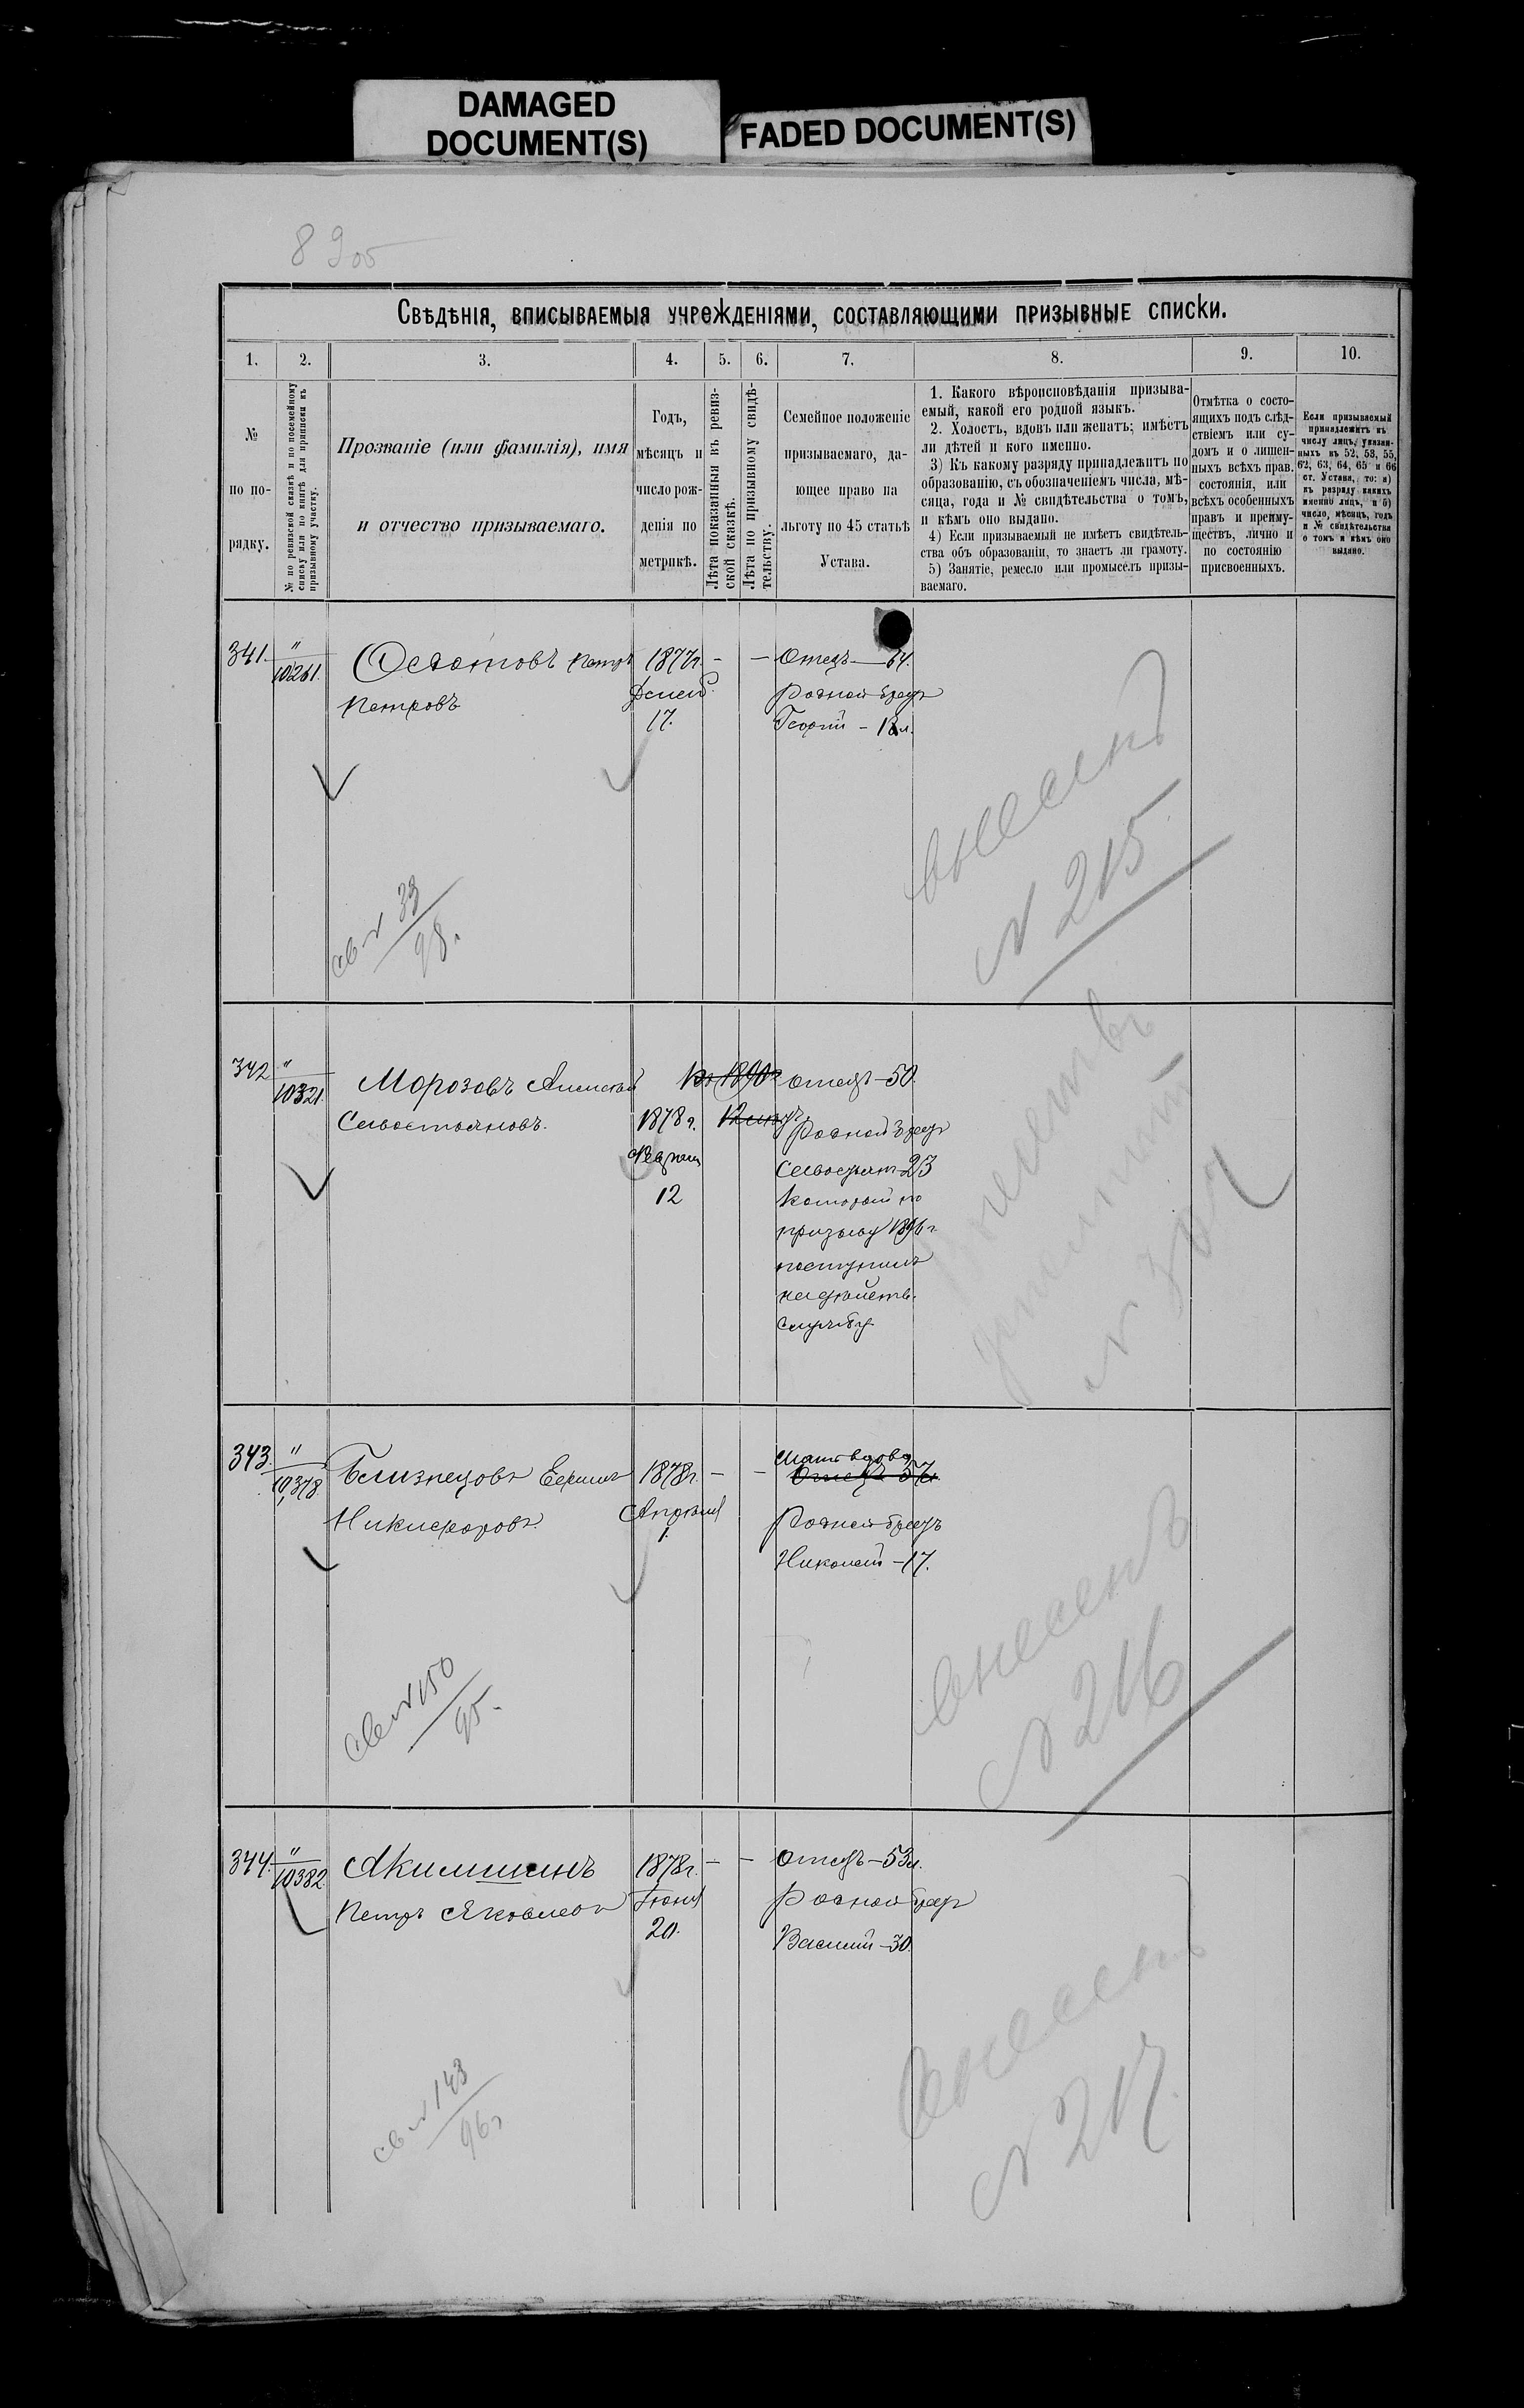 DAMAGED
DOCUMENT(S)
FADED DOCUMENT(S)
8905
Свѣдѣнія, вписываемыя учрежденіями, составляющими призывные списки.
1. 2. 3. 4. 5. 6. 7. 8. 9. 10.
№
по по-
рядку.
№ по ревизской сказкѣ и по посемейному
списку или по книгѣ для приписки къ
призывному участку.
Прозваніе (или фамилія), имя
и отчество призываемаго.
Годъ,
мѣсяцъ и
число рож-
денія по
метрикѣ.
Лѣта показанныя въ ревиз-
ской сказкѣ.
Лѣта по призывному свидѣ-
тельству.
Семейное положеніе
призываемаго, да-
ющее право на
льготу по 45 статьѣ
Устава.
1. Какого вѣроисповѣданія призыва-
емый, какой его родной языкъ.
2. Холостъ, вдовъ или женатъ; имѣетъ
ли дѣтей и кого именно.
3) Къ какому разряду принадлежитъ по
образованію, съ обозначеніемъ числа, мѣ-
сяца, года и № свидѣтельства о томъ,
и кѣмъ оно выдано.
4) Если призываемый не имѣетъ свидѣтель-
ства объ образованіи, то знаетъ ли грамоту.
5) Занятіе, ремесло или промыселъ призы-
ваемаго.
Отмѣтка о состо-
ящихъ подъ слѣд-
ствіемъ или су-
домъ и о лишен-
ныхъ всѣхъ прав.
состоянія, или
всѣхъ особенныхъ
правъ и преиму-
ществъ, лично и
по состоянію
присвоенныхъ.
Если призываемый
принадлежитъ къ
числу лицъ, указан-
ныхъ въ 52, 53, 55,
62, 63, 64, 65 и 66
ст. Устава, то: а)
къ разряду какихъ
именно лицъ, и б)
число, мѣсяцъ, годъ
и № свидѣтельства
о томъ и кѣмъ оно
выдано.
341. " 10261. Петръ 1877г. - - Отецъ — 64.
Петровъ Родной братъ
17. Георгій - 18 л.
внесенъ
№ 215
св № 33
98.
342 " 10321. Морозовъ Алексѣй отецъ - 50.
Севостьяновъ. 1878 г. Родной братъ
12 23
который по
призыву 1896 г
поступилъ
на дѣйств.
службу
343. " 10378 Близнецовъ 1878г. - - Мать вдова
Отецъ 57
Никифоровъ. Апрѣля Родной братъ
1. Николай - 17.
внесенъ
№ 216
св № 150
95.
344. " 10382. Акимшинъ 1878г. - - Отецъ - 53 л.
Петръ Яковлевъ Іюня Родной братъ
20. Василій - 30.
внесенъ
№ 217.
св № 143
96г